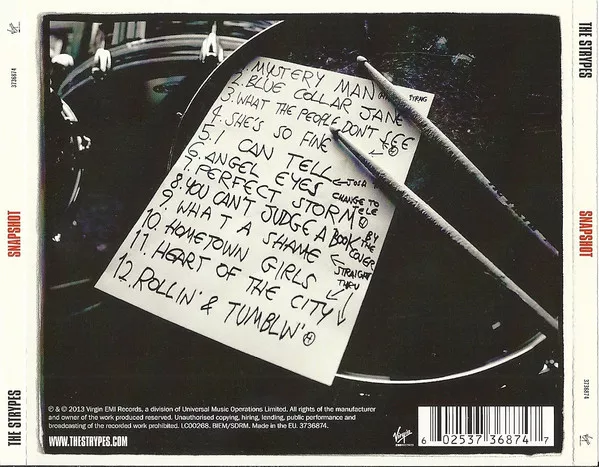 THE STRYPES
SNAPSHOT
3736874
Virgin
1. MYSTERY MAN
2. BLUE COLLAR JANE
3. WHAT THE PEOPLE DON'T SEE
4. SHE'S SO FINE
5. I CAN TELL
6. ANGEL EYES
7. PERFECT STORM
8. YOU CAN'T JUDGE A BOOK BY THE COVER
9. WHAT A SHAME
10. HOMETOWN GIRLS
11. HEART OF THE CITY
12. ROLLIN' & TUMBLIN' H
H
JOSH
CHANGE TO
TELE
STRAIGHT
THRU
℗ & © 2013 Virgin EMI Records, a division of Universal Music Operations Limited. All rights of the manufacturer
and owner of the work produced reserved. Unauthorised copying, hiring, lending, public performance and
broadcasting of the recorded work prohibited. LC00268. BIEM/SDRM. Made in the EU. 3736874.
WWW.THESTRYPES.COM
Virgin
6 02537 36874 7
THE STRYPES
SNAPSHOT
3736874